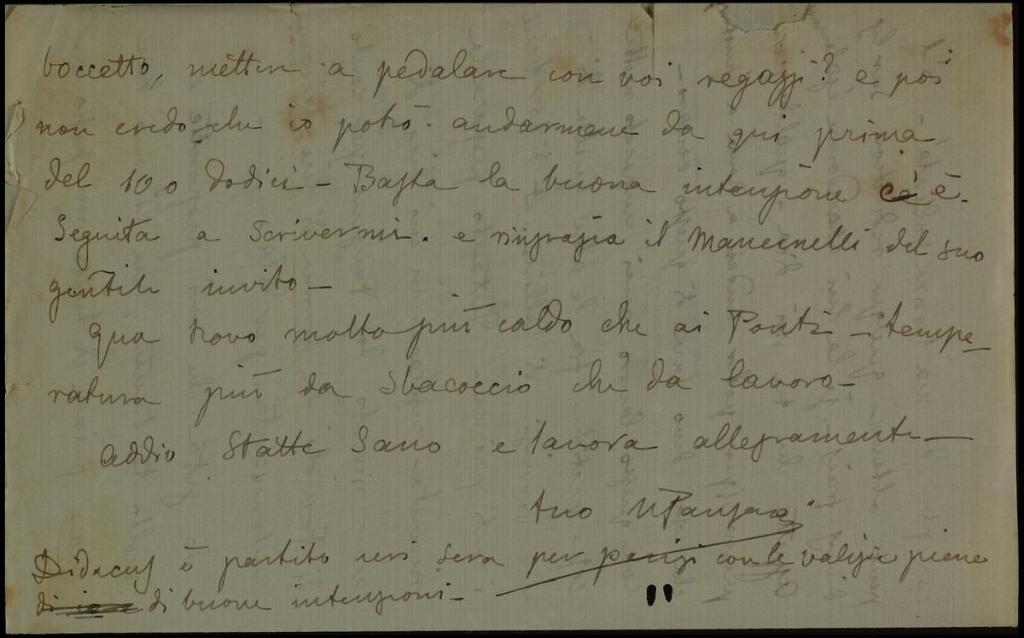 boccetto, mettere a pedalare con voi regazzi? e poi
non credo che io potrò. andarmene da qui prima
del 10. o dodici - Basta la buona intenzione c'è è.
Seguita a scrivermi. e ringrazia il Mancinelli del suo
gentile invito -
Qua trovo molto più caldo che ai Ponti - tempe-
ratura più da Sbacoccio che da lavoro -
addio Statte Sano e lavora allegramente -
tuo
Didacus è partito ieri sera per parigi con le valigie piene
di buone intenzioni -
"